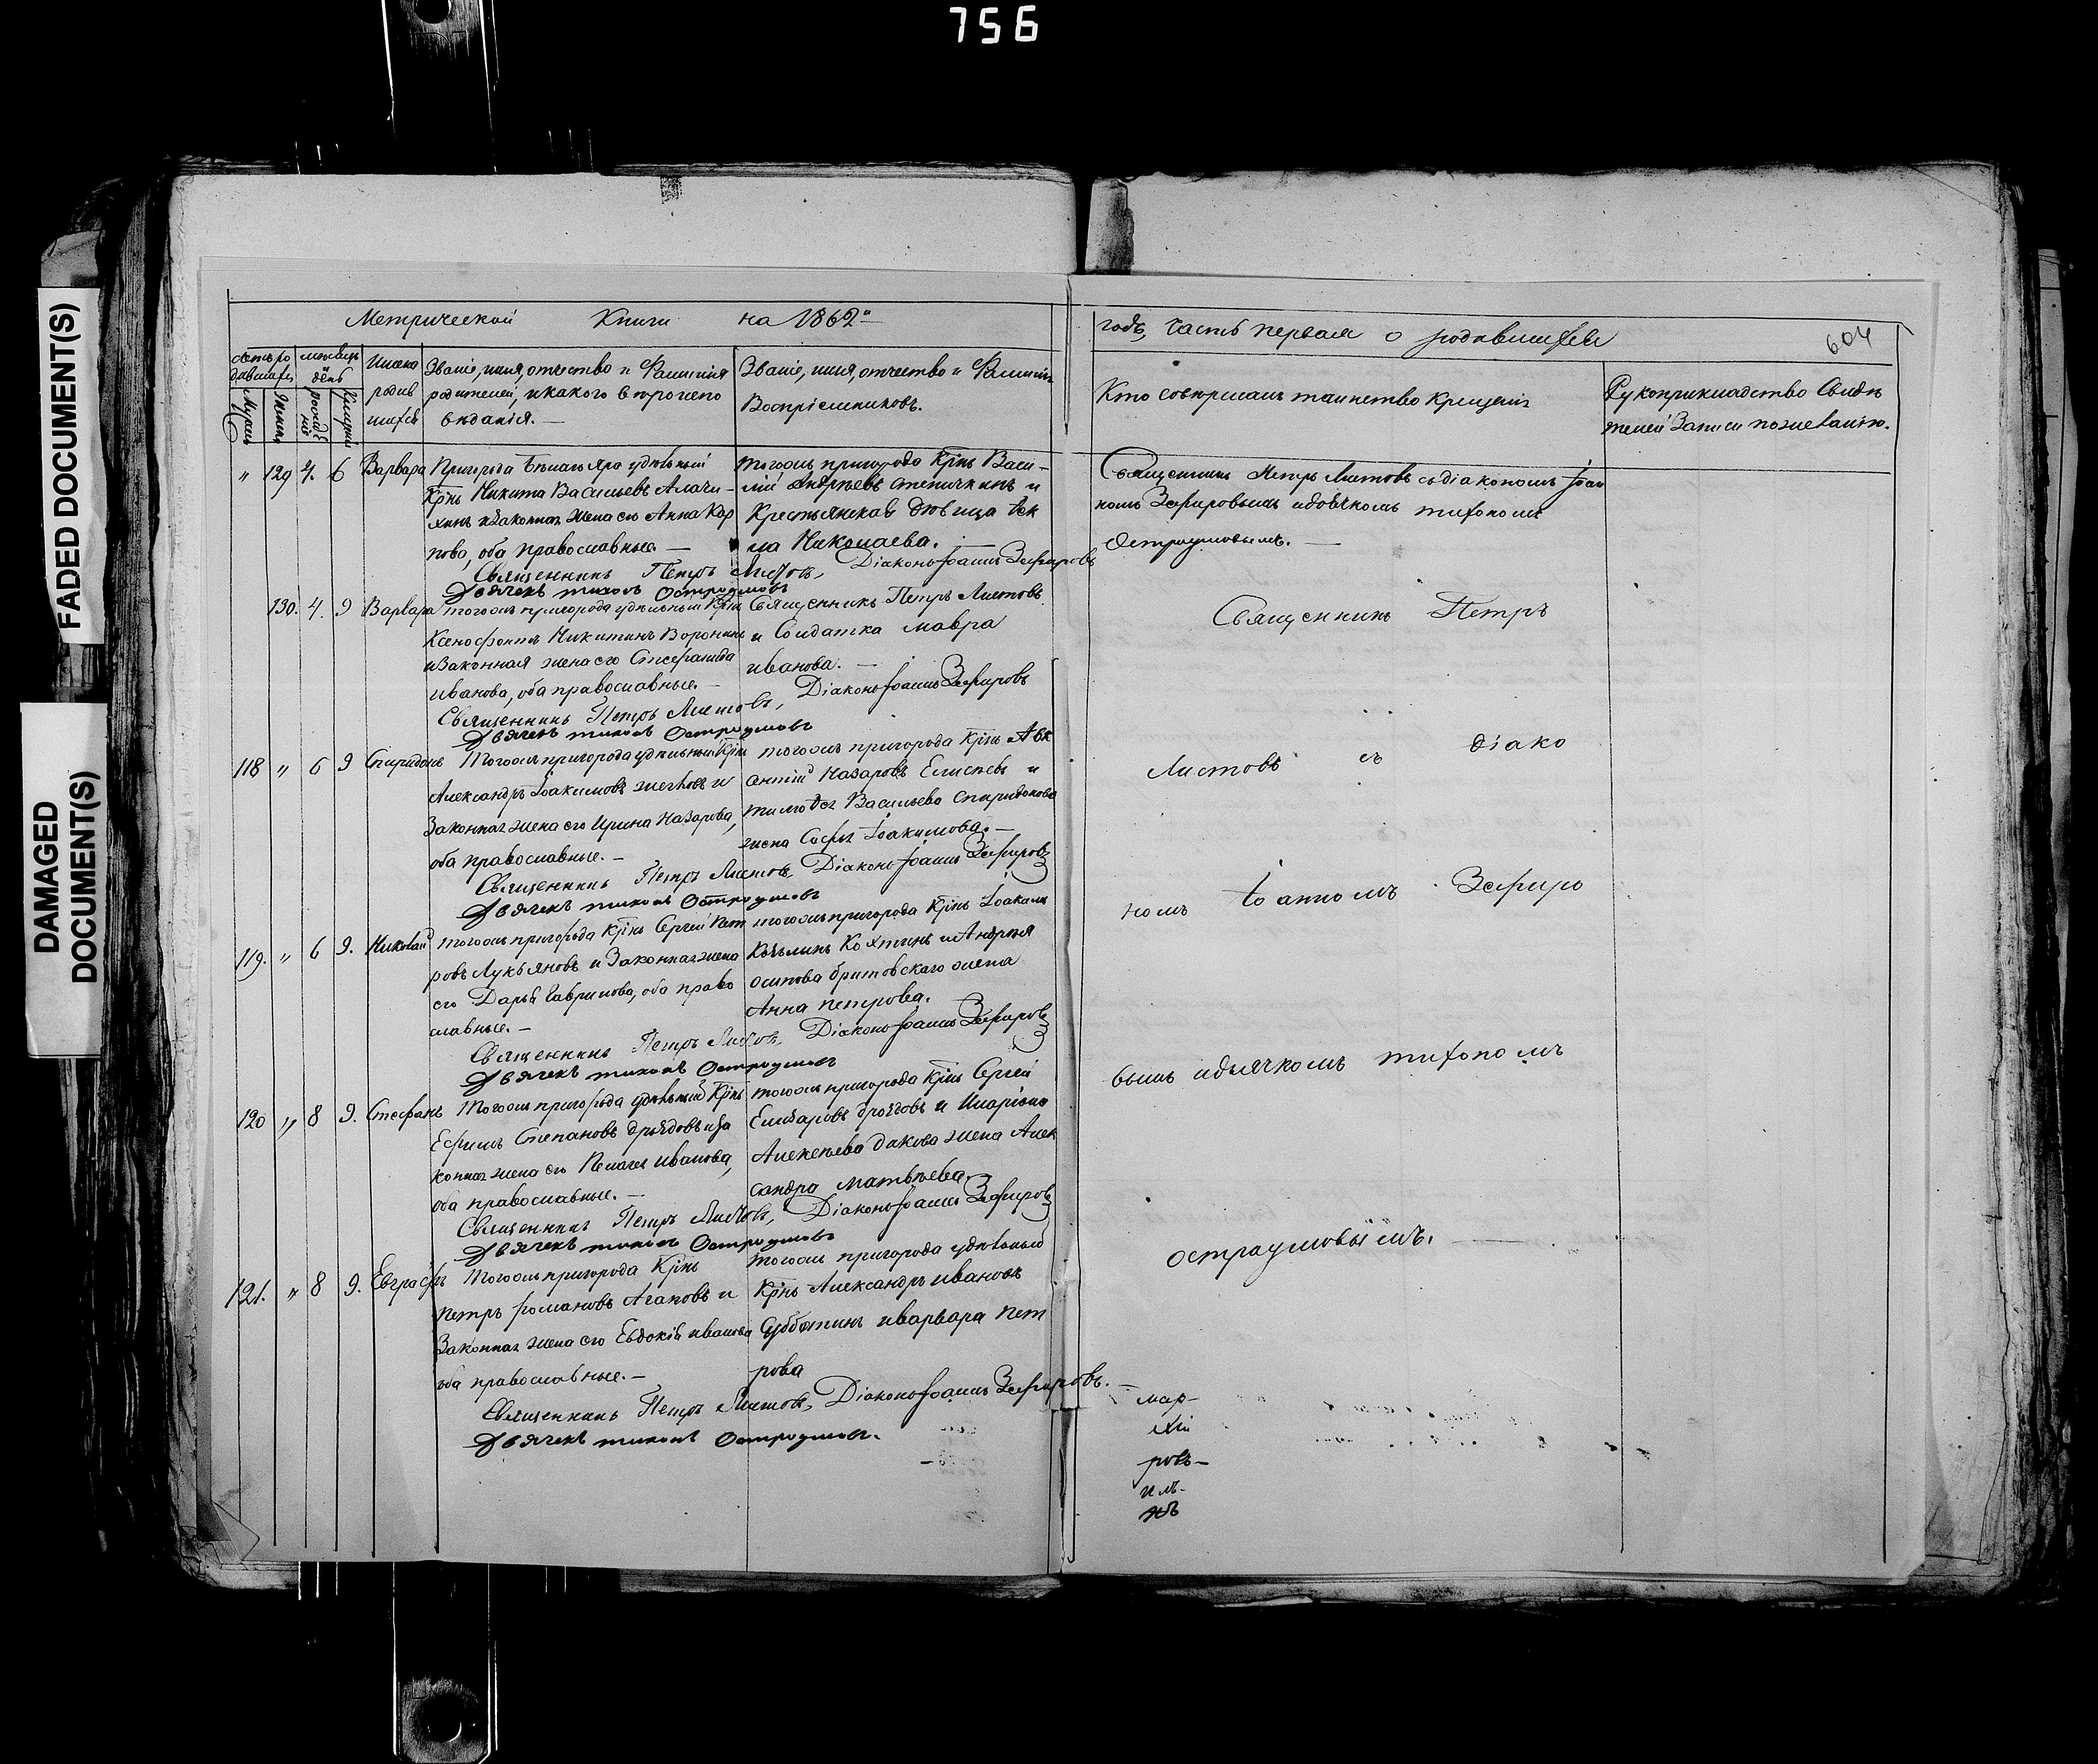 756
FADED DOCUMENT(S)
DAMAGED
DOCUMENT(S)
Метрической Книги на 1862й
годъ, часть первая о родившихся
604
Имена
родив
шихся
Званіе, имя, отчество и Фамилія
родителей, и какого вѣроиспо
вѣданія. —
Званіе, имя, отчество и Фамилія
Воспріемниковъ.
Кто совершалъ таинство крещенія
Рукоприкладство Свидѣ
телей Записи по желанію.
" 129 4. 6 Варвара
Пригорода Бѣлаго Яра удѣльный
Крнъ Никита Васильевъ
и законная жена его Анна Кар
пова, оба православные. —
тогожъ пригорода Крнъ Васи-
лій Андреевъ и
Крестьянская дѣвица Фек
ла Николаева. —
Священникъ Петръ Листовъ съ діакономъ Іоан
номъ Зефировымъ и дьячкомъ тихономъ
Остроумовымъ. —
Священникъ Петръ Листовъ, Діаконъ Іоаннъ Зефировъ
Дьячекъ тихонъ Остроумовъ
130. 4. 9 Варвара
тогожъ пригорода удѣльный Крнъ
Ксенофонтъ Никитинъ Воронинъ
и Законная жена его Стефанида
иванова, оба православные. —
Священникъ Петръ Листовъ
и Солдатка мавра
иванова. —
Священникъ Петръ Листовъ, Діаконъ Іоаннъ Зефировъ
Дьячекъ тихонъ Остроумовъ
118 " 6 9 Спиридонъ
Тогожъ пригорода удѣльный Крнъ
Александръ Іоакимовъ и
Законная жена его Ирина Назарова,
оба православные. —
тогожъ пригорода Крнъ
Назаровъ Елисеевъ и
тимофея Васильева Спиридонова
жена Софья Іоакимова. —
Священникъ Петръ Листовъ, Діаконъ Іоаннъ Зефировъ
Дьячекъ тихонъ Остроумовъ
119. " 6 9. Николай
тогожъ пригорода Крнъ Сергей Пет
ровъ Лукьяновъ и Законная жена
его Дарья Гаврилова, оба право
славные. —
тогожъ пригорода Крнъ Іоакимъ
и Андрея
осипова жена
Анна петрова.
Священникъ Петръ Листовъ, Діаконъ Іоаннъ Зефировъ
Дьячекъ тихонъ Остроумовъ
120 " 8 9. Стефанъ
Тогожъ пригорода удѣльный Крнъ
Ефимъ Степановъ Дроздовъ и за
конная жена его Пелагея иванова,
оба православные. —
тогожъ пригорода Крнъ Сергей
Елизаровъ дроздовъ и Иларіона
Алексеева жена Алек
сандра матвѣева.
Священникъ Петръ Листовъ, Діаконъ Іоаннъ Зефировъ
Дьячекъ тихонъ Остроумовъ
121. " 8 9. Евграфъ
Тогожъ пригорода Крнъ
Петръ романовъ Агаповъ и
Законная жена его Евдокія иванова
оба православные. —
тогожъ пригорода удѣльный
Крнъ Александръ ивановъ
Субботинъ и варвара пет
рова
Священникъ Петръ Листовъ, Діаконъ Іоаннъ Зефировъ. —
Дьячекъ тихонъ Остроумовъ.
Священникъ Петръ
Листовъ съ діако
номъ Іоанномъ Зефиро
вымъ и дьячкомъ тихономъ
остроумовымъ. —
мар-
хіи
ровъ-